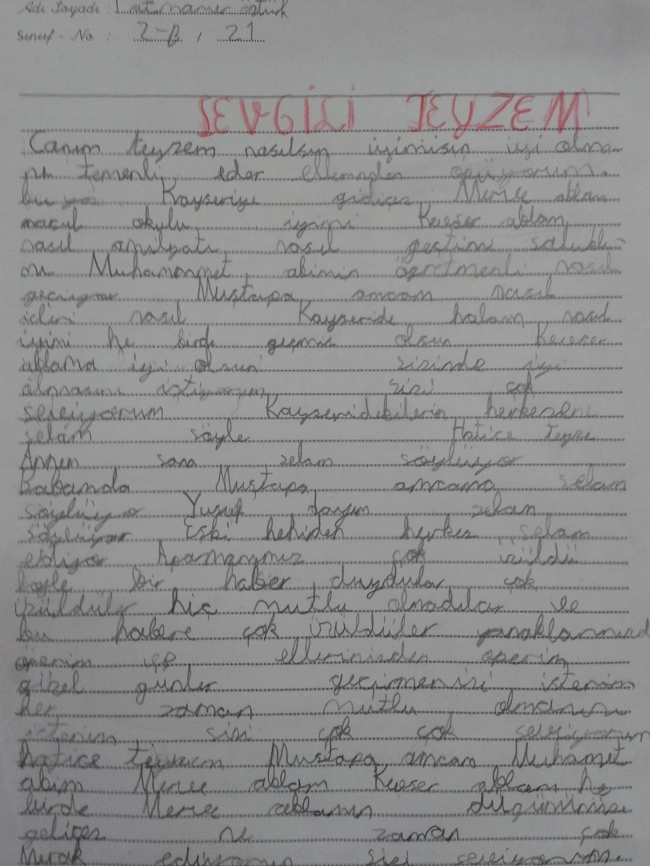 Adı Soyadı:
Sınıf - No : 2-B, 21
SEVGİLİ TEYZEM
Canım teyzem nasılsın iyimisin iyi olma-
nı temenli eder ellerinden öpüyorum.
bu yaz Kayseriye Merve ablam
nasıl okulu iyimi Kevser ablam
nasıl nasıl geçtimi
mı Muhammet abimin öğretmenli nasıl
geçiyor Mustapa amcam nasıl
işleri nasıl Kayseride halam nasıl
iyimi he birde geçmiş olsun Kevser
ablama iyi olsun sizinde iyi
olmasını istiyorum sizi çok
seviyorum Kayseridekilerin herkesene
selam söyle Hatice teyze
Annem sana selam söylüyor
Babamda Mustapa amcama selam
söylüyor Yusuf dayım selam
söylüyor Eski herkes selam
ediyor çok üzüldü
böyle bir haber duydular çok
üzüldüler hiç mutlu olmadılar ve
bu habere çok üzüldüler
öperim ellerinizden öperim
güzel günler geçirmenizi isterim
her zaman mutlu olmanızı
isterim sizi çok çok seviyorum
hatice teyzem Mustapa amcam Muhamet
abim Merve ablam Kevser ablam he
birde Merve ablamın
ne zaman çok
Merak ediyorum sizi seviyorum